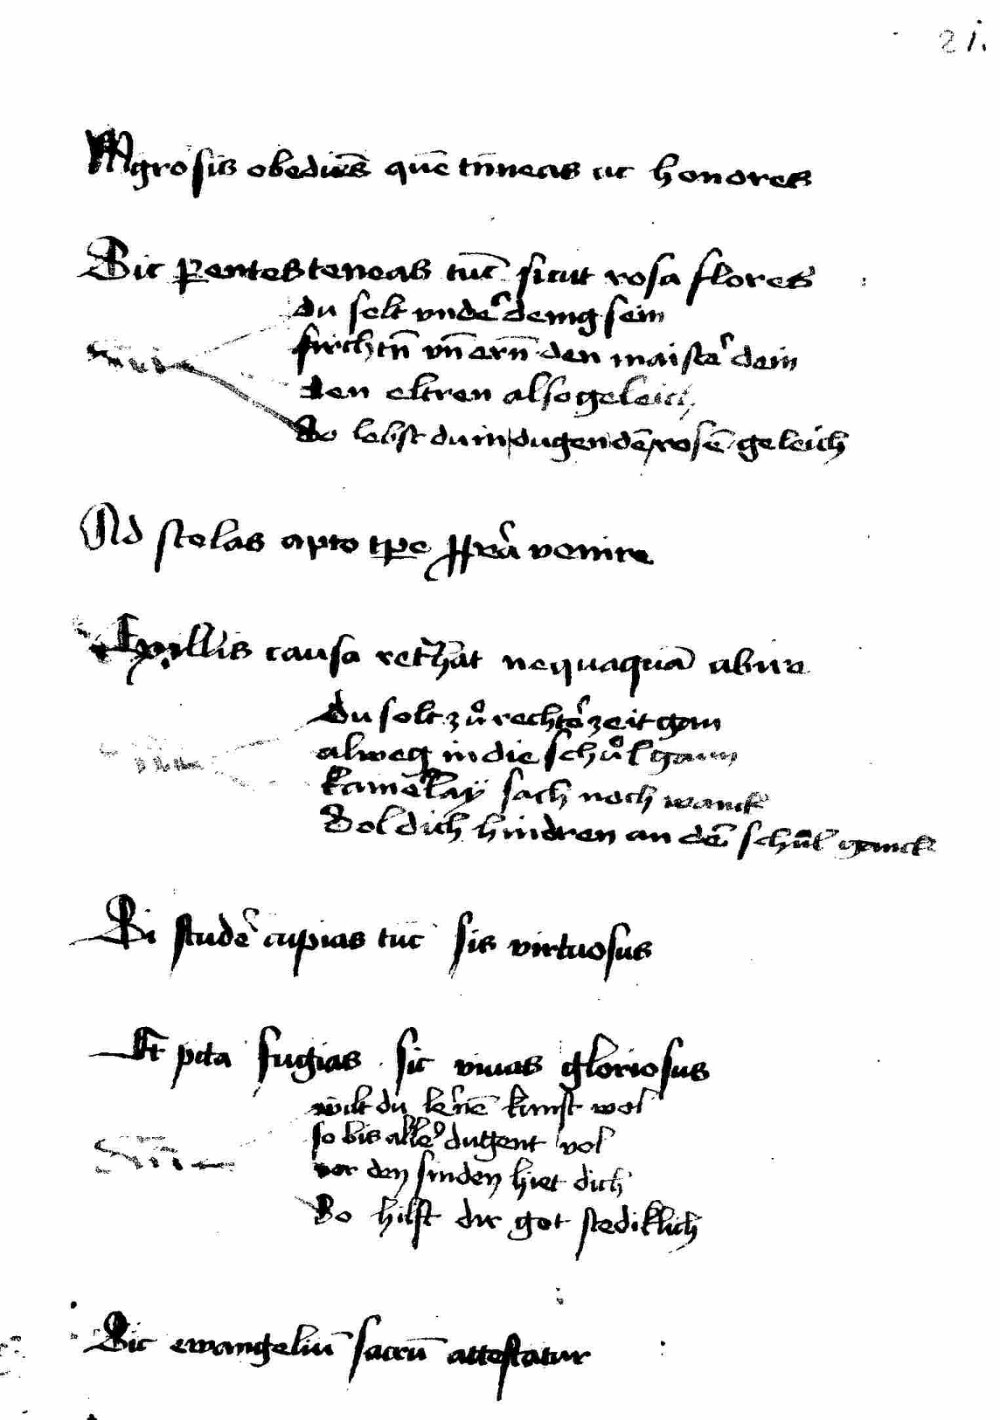 21.
Mgro sis obediēs quē timeas ac honores
Sic parentes teneas tūc sicut rosa flores
du solt vnder demg sein
firchtn̄ vn̄ ern̄ den maister dein
den eltren also geleich
So lebst du in dugendē rosē geleich
Ad scolas apto tpe venire
illis causa nequaquā abire
Du solt zů rechter zeit gan
alweg in die schůl gann
kainerlay sach noch wanck
Sol dich hindren an der schůl ganck
Si studere cupias tūc sis virtuosus
Et pcta fugias sic viuas gloriosus
wilt du lernē kunst wol
so bis aller dugent vol
vor den sinden hiet dich
So hilft dir got stediklich
Sic ewangeliū sacrū attestatur